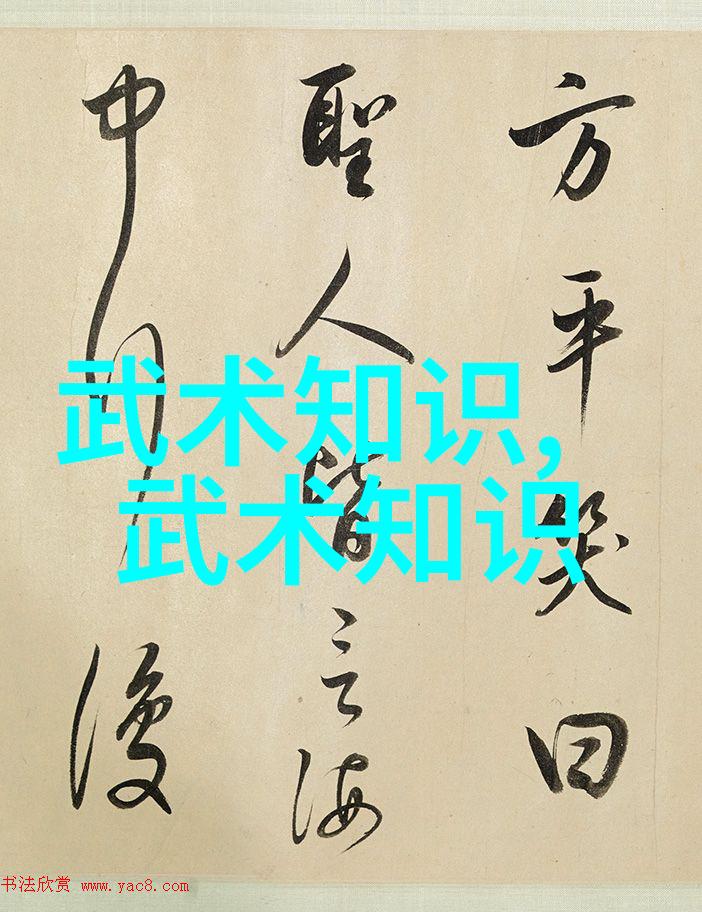 方平笑曰
聖人皆言海
中行復
武术知识,
武术知识
书法欣赏 www.yac8.com